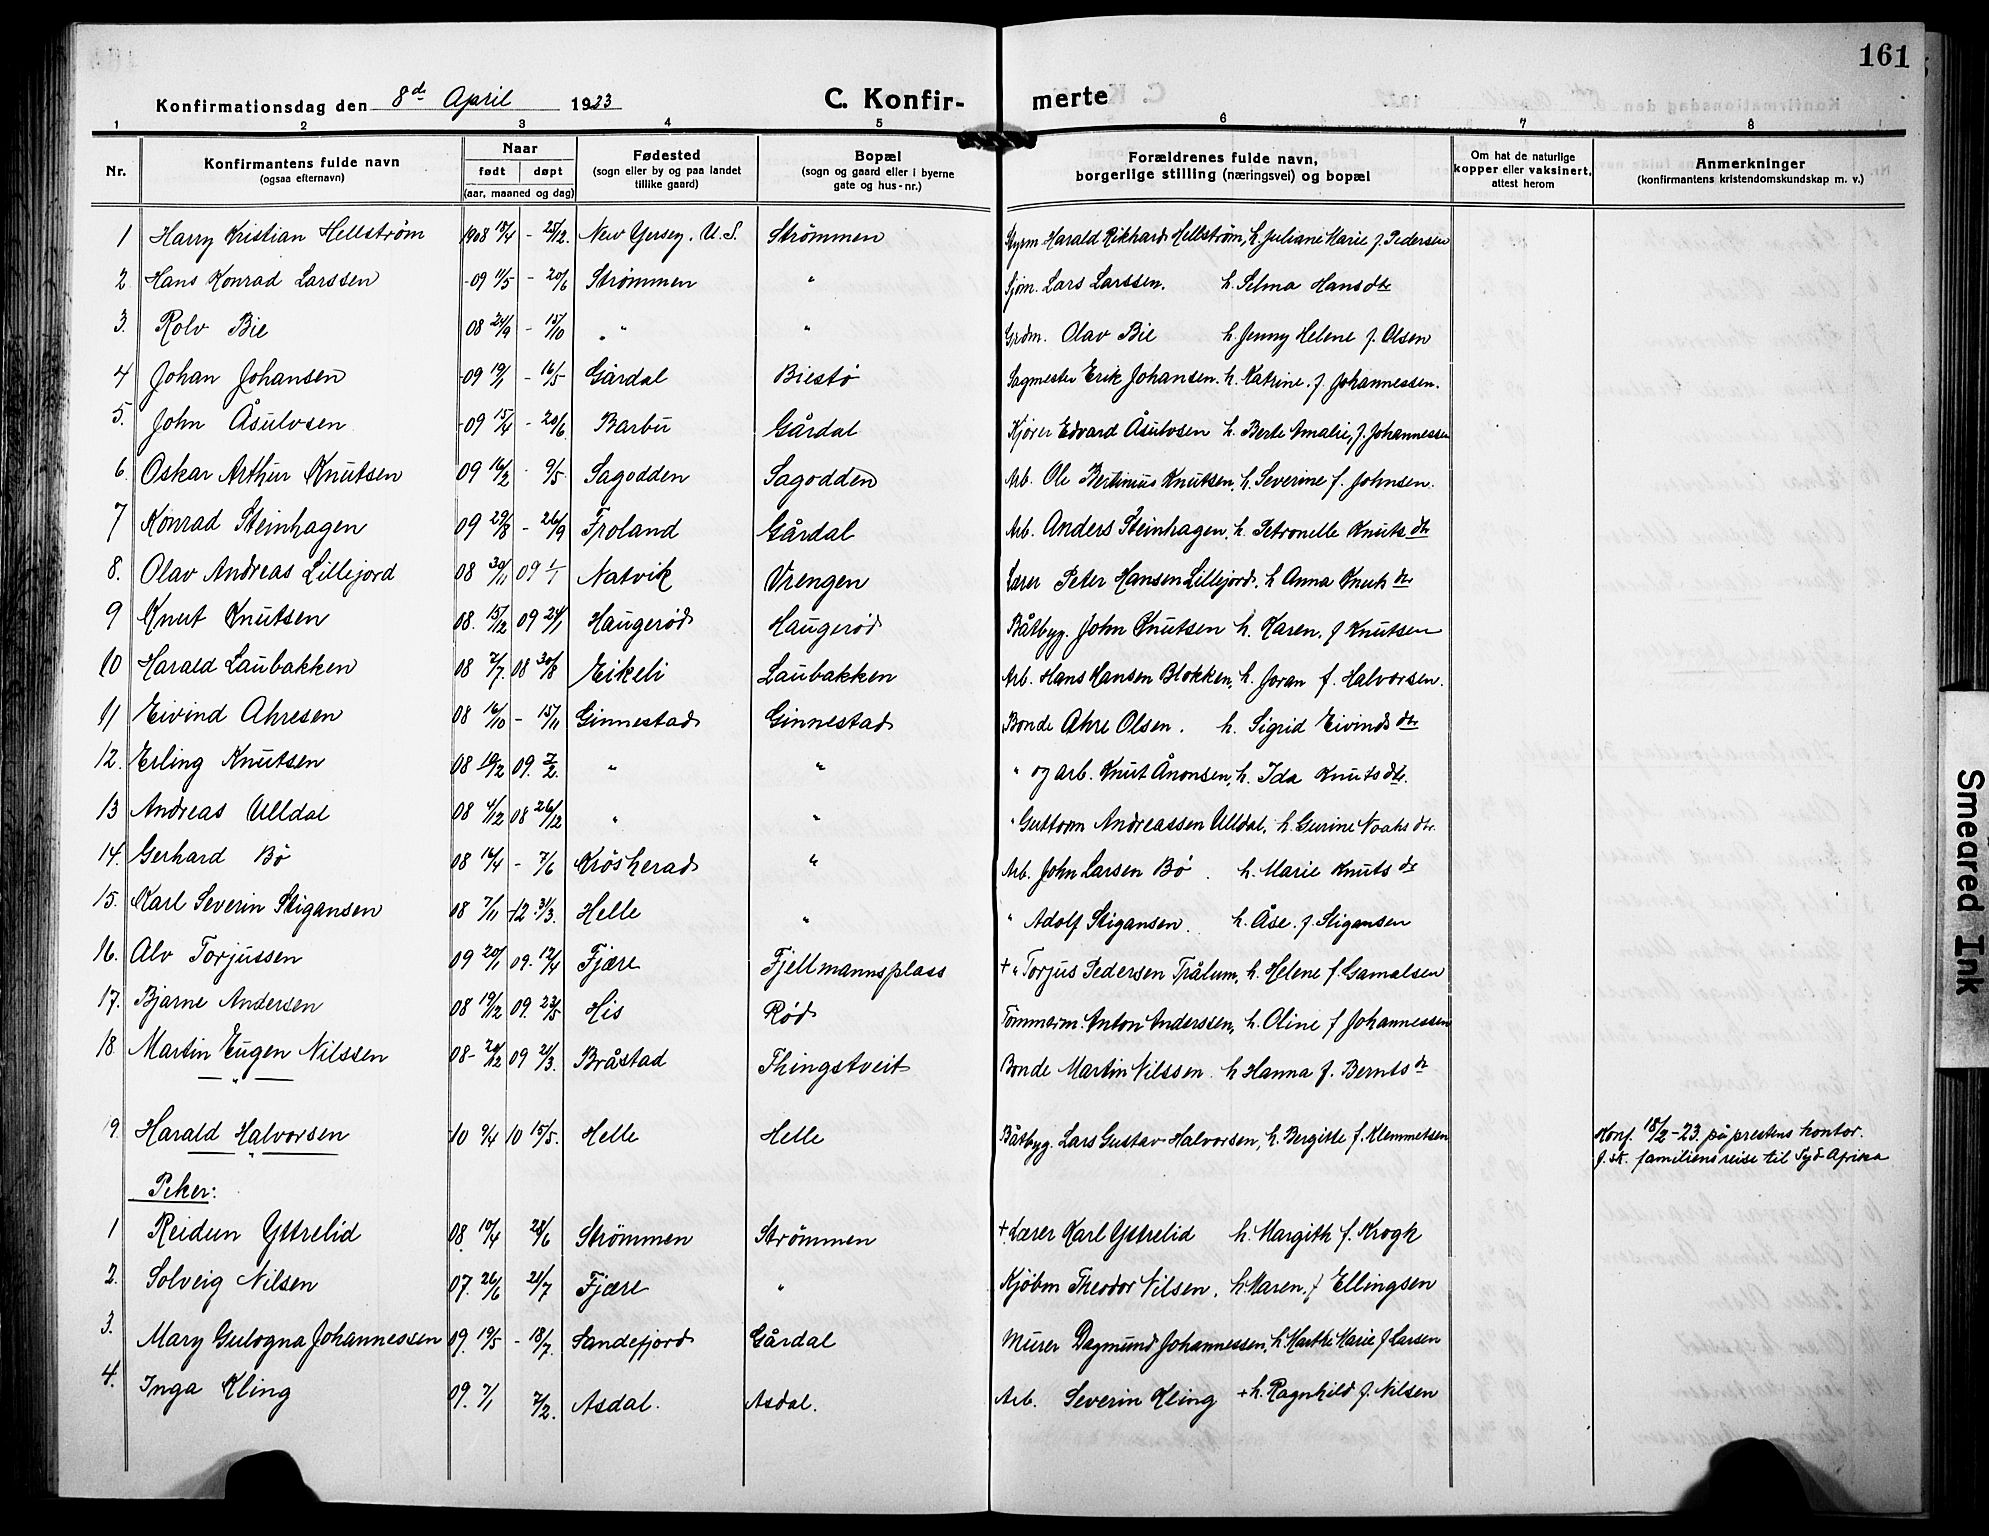 161
Konfirmationsdag den 8d April 1923 C. Konfirmerte
1 2 3 4 5 6 7 8
Nr. Konfirmantens fulde navn (ogsaa efternavn) Naar født døpt (aar, maaned og dag) Fødested (sogn eller by og paa landet tillike gaard) Bopæl (sogn og gaard eller i byerne gate og hus-nr.) Forældrenes fulde navn, borgerlige stilling (næringsvei) og bopæl Om hat de naturlige kopper eller vaksinert, attest herom Anmerkninger (konfirmantens kristendomskundskap m. v.)
1 Harry Kristian Hellstrøm 1908 18/4 - 25/12. New Yersey. U.S. Strømmen Styrm Harald Rikhard Hellstrøm, h. Juliane Marie f. Pedersen
2 Hans Konrad Larssen -09 11/5 - 20/6 Strømmen " Sjøm. Lars Larssen. h. Selma Hansdtr
3. Rolv Bie 08 24/9 - 15/10 " " Grdm. Olav Bie h. Jenny Helene f. Olsen
4 Johan Johansen -09 19/1 - 16/5 Gårdal Biestø Sagmester Erik Johansen. h. Katrine. f. Johannessen.
5. John Åsulvsen -09 15/4 - 20/6 Barbu Gårdal Kjører Edvard Åsulvsen h. Berte Amalie, f. Johannessen
6. Oskar Arthur Knutsen 09 16/2 - 9/5 Sagodden Sagodden Arb. Ole Bertinius Knutsen, h. Severine f. Johnsen.
7 Konrad Steinhagen 09 29/8 - 26/9 Froland Gårdal Arb. Anders Steinhagen, h. Petronelle Knutsdtr
8. Olav Andreas Lillejord 08 30/11 09 1/1 Natvik Vrengen Lærer Peter Hansen Lillejord, h Anna Knutsdtr
9 Knut Knutsen 08. 15/12 09 24/1 Haugerød Haugerød Båtbyg. John Knutsen h. Karen. f Knutsen
10 Harald Laubakken 08 2/7. 08 30/8 Eikeli Laubakken Arb. Hans Hansen Blokken, h. Joran f. Halvorsen.
11 Eivind Ahresen 08 16/10 - 15/11 Ginnestad Ginnestad Bonde Ahre Olsen. h. Sigrid Eivindsdtr
12. Erling Knutsen 08 19/2 09. 2/2. " " " og arb. Knut Ånonsen, h. Ida Knutsdtr.
13 Andreas Ulldal 08 4/12 08 26/12 " " " Guttorm Andreassen Ulldal, h. Gurine Noahsdtr.
14. Gerhard Bø 08 16/4 - 7/6 Krøsherad " Arb. John Larsen Bø. h. Marie Knutsdtr
15. Karl Severin Stigansen 08 7/11 -12 31/3. Helle " " Adolf Stigansen. h. Åse. f. Stigansen
16. Alv Torjussen 09 20/1 09. 12/4 Fjære Fjellmannsplass + " Torjus Pedersen Trålum, h. Helene f. Gamalsen
17. Bjarne Andersen 08 19/12 09. 23/5 His Rød Tømmerm. Anton Anderssen, h. Oline f Johannessen
18 Martin Eugen Nilssen 08- 20/12 09 21/3. Bråstad Thingstveit Bonde Martin Nilssen. h Hanna f. Berntsdtr
"
19. Harald Halvorsen -10 9/4 10 15/5. Helle Helle Båtbyg. Lars Gustav Halvorsen, h. Bergitte f. Klemmetsen Konf. 18/2-23. på prestens kontor. f. sk. familiens reise til Syd Afrika
"
Piker:
1 Reidun Yttrelid 08. 10/4 28/6 Strømmen Strømmen + Lærer Karl Yttrelid h. Margith f. Krogh
2. Solveig Nilsen 07. 26/6 21/7 Fjære " Kjøbm Theodor Nilsen. h. Maren. f Ellingsen
3. Mary Gulogna Johannessen 09. 19/5 - 18/7. Sandefjord Gårdal Murer Dagmund Johannessen, h. Marthe Marie f Larsen
4. Inga Kling 09. 7/1 7/2. Asdal. Asdal. Arb. Severin Kling + h. Ragnhild f. Nilsen
Smeared Ink